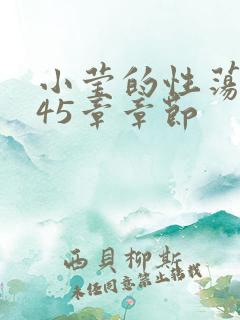 小莹的性荡
45章章节
西贝柳斯
未经同意禁止转载